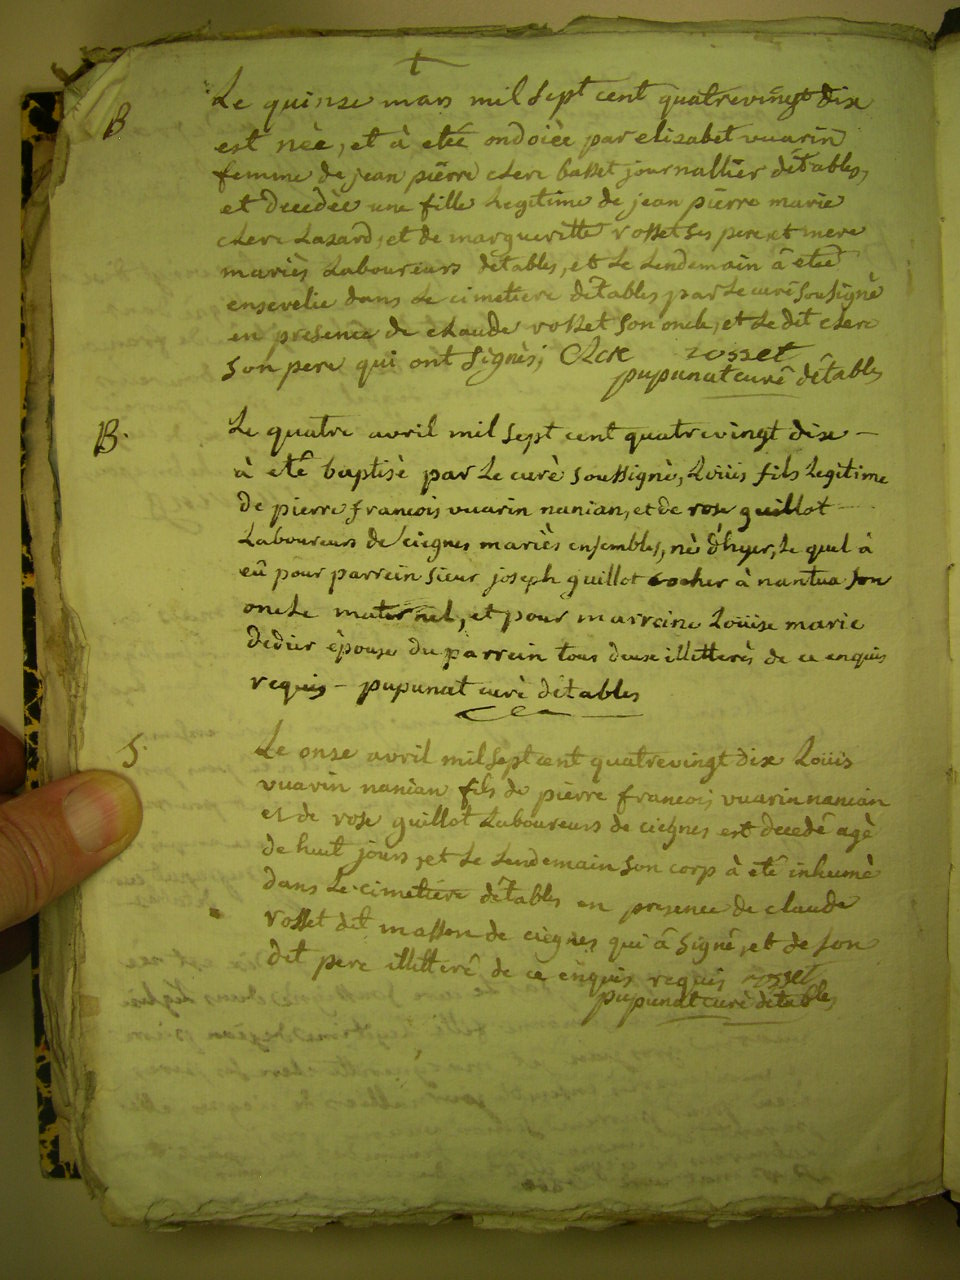 t
B
Le quinze mars mil sept cent quatrevingt dix
est née, et à etée ondoièe par elizabet vuarin
femme de jean piërre clerc basset journallier détables,
et decedée une fille Legitime de jean pierre marie
clerc Lazard, et de margueritte rosset ses pere et mere
mariès Laboureurs détables, et Le Lendemain â etée
ensevelie dans Le cimetiere détables par Le curé Sousigné
en presence de claude rosset son oncle, et Le dit clerc
son pere qui ont signès; Clerc rosset
pupunat curé détables
B.
Le quatre avril mil sept cent quatrevingt dix —
à etê baptisè par Le curè soussignè, Loüis fils Legitime
de pierre francois vuarin nanian, et de rose guillot
Laboureurs de ciegnes mariès ensembles, nè d'hyer, Le quel à
eû pour parrein sieur joseph guillot cocher à nantua son
oncle maternel, et pour marreine Loüise marie
dedier èpouse du parrein tous deux illitterès de ce enquis
requis — pupunat curè détables
S.
Le onze avril mil sept cent quatrevingt dix Loüis
vuarin nanian fils de pierre francois vuarin nanian
et de rose guillot Laboureurs de ciegnes est decedé agè
de huit jours, et Le Lendemain son corp à etê inhumè
dans Le cimetiere détables en presence de claude
rosset dit masson de ciegnes qui â signé, et de son
dit pere illitterê de ce enquis requis rosset
pupunat curé détables